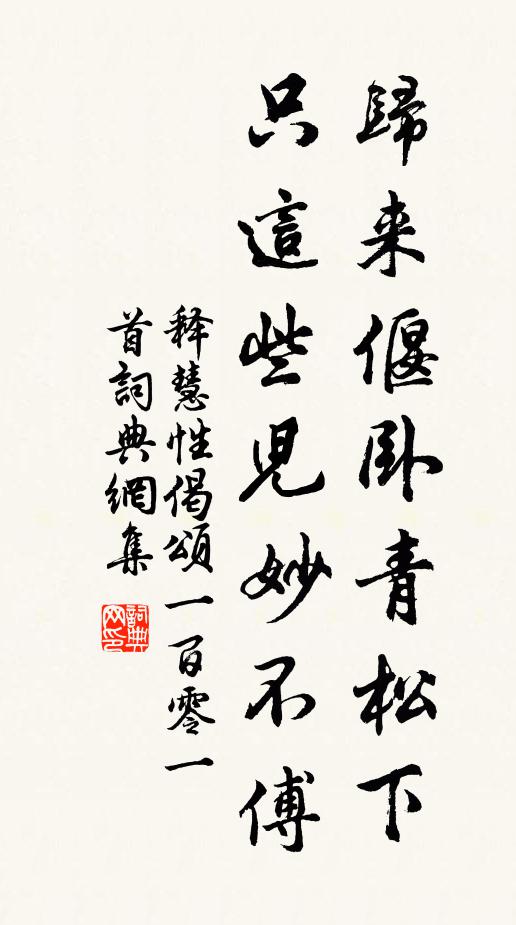 歸来偃卧青松下
只這些兒妙不傳
释慧性偈頌一百零一
首詞典網集
詞典网印